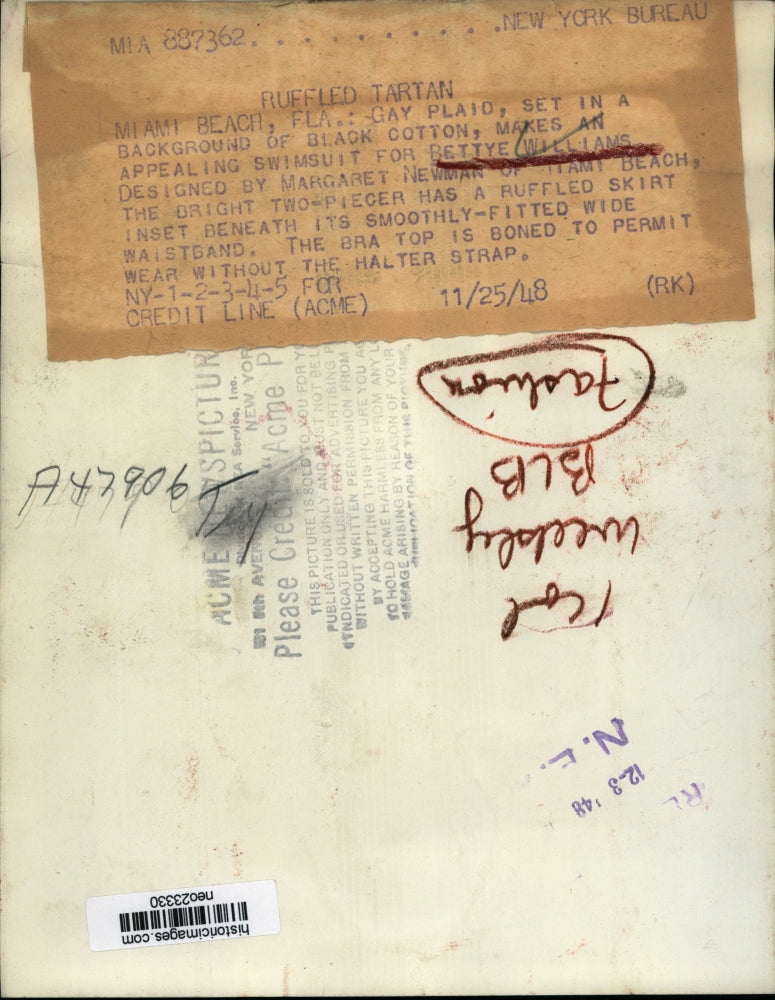 MIA 887362. . . . . . . . . . . .NEW YORK BUREAU
RUFFLED TARTAN
MIAMI BEACH, FLA.: GAY PLAID, SET IN A
BACKGROUND OF BLACK COTTON, MAKES AN
APPEALING SWIMSUIT FOR BETTYE WILLIAMS.
DESIGNED BY MARGARET NEWMAN OF MIAMI BEACH,
THE BRIGHT TWO-PIECER HAS A RUFFLED SKIRT
INSET BENEATH ITS SMOOTHLY-FITTED WIDE
WAISTBAND. THE BRA TOP IS BONED TO PERMIT
WEAR WITHOUT THE HALTER STRAP.
NY-1-2-3-4-5 FOR
CREDIT LINE (ACME) 11/25/48 (RK)
ACME SPICTUR
EA Service, Inc.
8th AVEN NEW YOR
Please Cred "Acme P
THIS PICTURE IS SOLD TO YOU FOR Y
PUBLICATION ONLY AND MUST NOT BE L
SYNDICATED OR USED FOR ADVERTISING P
WITHOUT WRITTEN PERMISSION FROM
BY ACCEPTING THIS PICTURE YOU A
TO HOLD ACME HARMLESS FROM ANY L
DAMAGE ARISING BY REASON OF YOUR
PUBLICATION OF THIS PICTURE.
A47906
1 Col
Weekly
BLB
Fashion
N. E.
12-3 '48
historicimages.com
neo23330